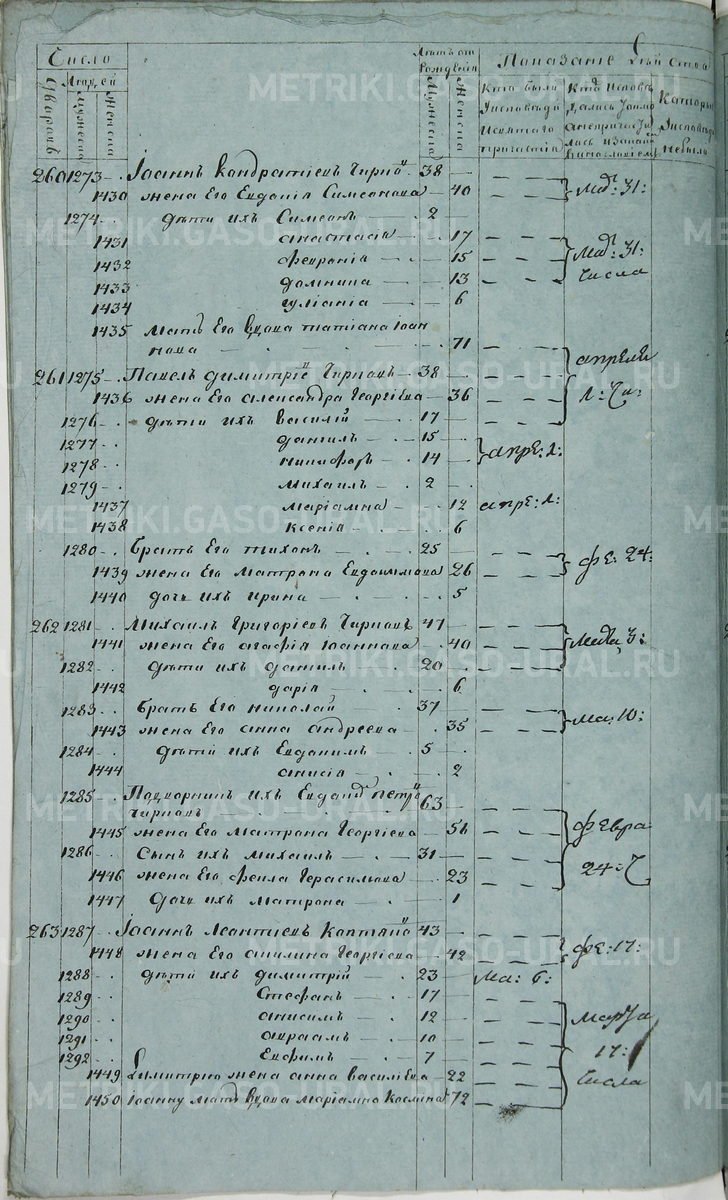 Число
Людей
Дворовъ
Мужеска
Женска
Лѣтъ отъ рождения
Мужеска
Женска
Показание
Кто были
Исповѣди
Исвятого
причастия
Кто Исповѣдались
Которы
Исповѣди
небыли
260 1273 Іоаннъ Кондратіевъ Чирко 38
1430 жена Его Евдокія Симеонова 40 Мар: 31:
1274 дѣти ихъ Симеонъ 2
1431 анастасія 17
1432 февронія 15 Мар: 31:
1433 домнина 13 Числа
1434 гуліанія 6
1435 Мать Его вдова татіана Іоан
нова 71
261 1275 Павелъ димитріе Чирковъ 38 апреля
1436 жена Его александра Георгіева 36 1: Чи:
1276 дѣти ихъ василій 17
1277 данилъ 15
1278 никифоръ 14 апре: 1:
1279 михаилъ 2
1437 маріамна 12 апре: 1:
1438 ксенія 6
1280 братъ Его тихонъ 25
1439 жена Его матрона Евдокимова 26 фе: 24:
1440 дочь ихъ ирина 5
262 1281 Михаилъ Григоріевъ Чирковъ 41
1441 жена Его агафія Іоаннова 40
1282 дѣти ихъ данилъ 20
1442 дарія 6
1283 братъ Его николай 37
1443 жена Его анна андреева 35 Ма: 10:
1284 дѣтй ихъ Евдокимъ 5
1444 анисія 2
1285 Подворникъ ихъ петро
Чирковъ 63
1445 жена Его Матрона Георгіева 56 февра
1286 Сынъ ихъ михаилъ 31
1446 жена Его фекла Герасимова 23 24: Ч
1447 дочь ихъ матрона 1
263 1287 Іоаннъ Леонтиевъ 43
1448 жена Его акилина Георгіева 42 фе: 17:
1288 дѣти ихъ димитрій 23 Ма: 6:
1289 Стефанъ 17
1290 анисимъ 12 Марта
1291 авраамъ 10
1292 Евфимъ 7 17:
1449 Димитрию жена анна василіева 22 Числа
1450 Іоанну мать вдова маріамна Космина 72
METRIKI.GASO-URAL.RU